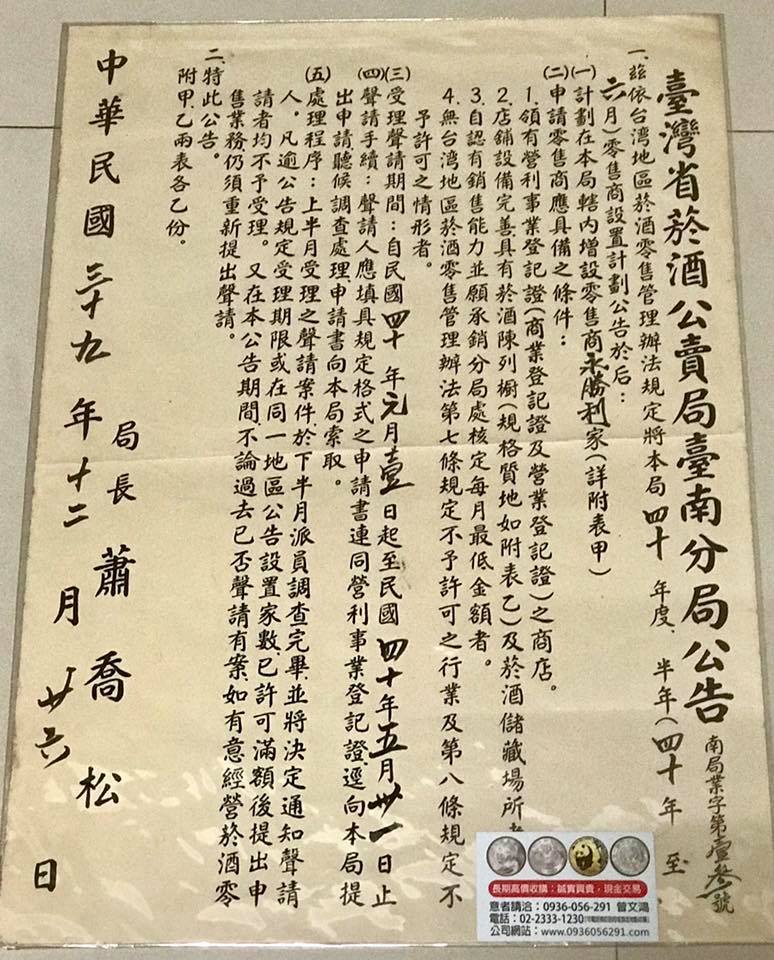 臺灣省菸酒公賣局臺南分局公告
南局業字第壹參號
一、茲依台湾地區菸酒零售管理辦法規定將本局四十年度、半年(四十年 至
六月)零售商設置計劃公告於后：
(一)計劃在本局轄内增設零售商永勝利家(詳附表甲)
(二)申請零售商應具備之條件：
1.領有營利事業登記證(商業登記證及營業登記證)之商店。
2.店舖設備完善具有菸酒陳列櫥(規格質地如附表乙)及菸酒儲藏場所
3.自認有銷售能力並願承銷分局處核定每月最低金額者。
4.無台湾地區菸酒零售管理辦法第七條規定不予許可之行業及第八條規定不
予許可之情形者。
(三)受理聲請期間：自民國四十年元月壹日起至民國四十年五月卅一日止
(四)聲請手續：聲請人應填具規定格式之申請書連同營利事業登記證逕向本局提
出申請聽候調查處理申請書向本局索取。
(五)處理程序：上半月受理之聲請案件、於下半月派員調查完畢、並將決定通知聲請
人。凡逾公告規定受理期限或在同一地區公告設置家數、已許可滿額後提出申
請者均不予受理。又在本公告期間、不論過去已否聲請有案、如有意經營菸酒零
售業務仍須重新提出聲請。
二、特此公告。
附甲、乙兩表各乙份。
局長 蕭喬松
中華民國三十九年十二月廿六日
長期高價收購：誠實買賣，現金交易
意者請洽：0936-056-291 曾文鴻
電話：02-2333-1230
公司網站：www.0936056291.com